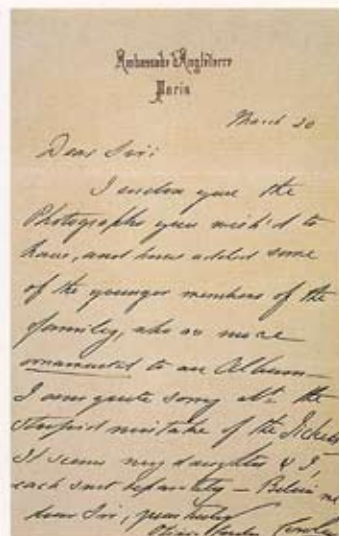 Ambassade d'Angleterre
Paris
March 20
Dear Sir
I enclose you the
Photographs you wish'd to
have, and have added some
of the younger members of the
family, who are more
ornamental to an Album—
I am quite sorry at the
stupid mistake of the Tickets
It seems my daughter & I,
each sent separately — Believe me
dear Sir, yours truly